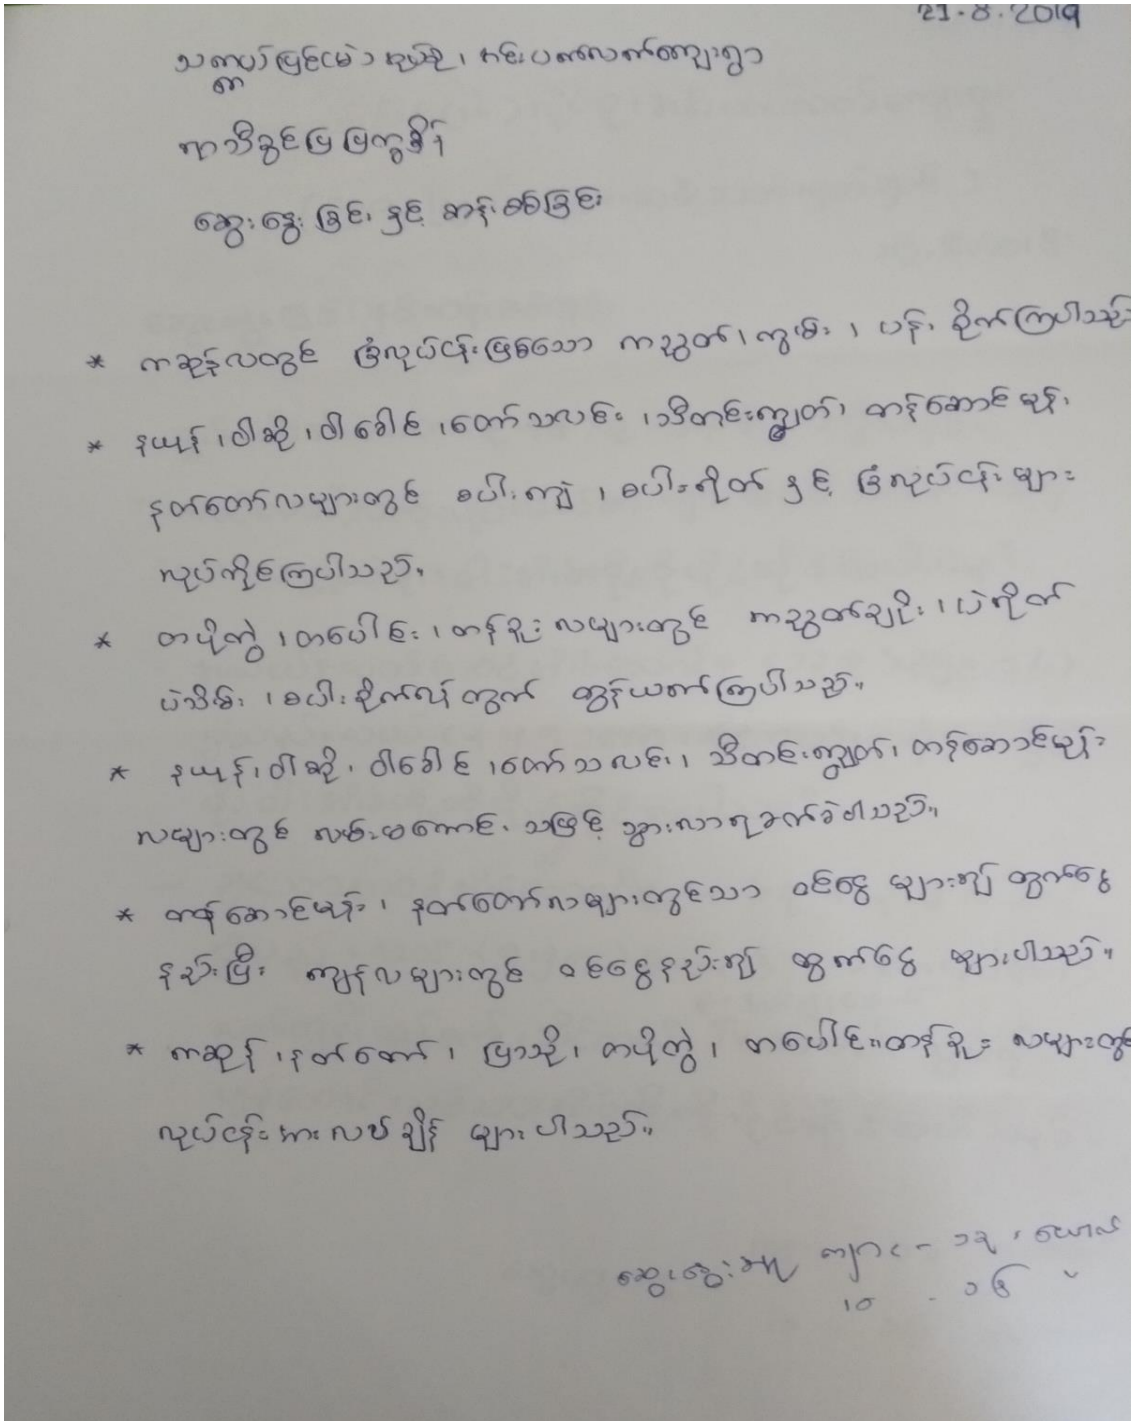 21.8.2019
ကျေးရွာ
ရာသီခွင်ပြ မြကွခ်ိန်
ဆွေးနွေးခြင်း နှင့် ဆန်းစစ်ခြင်း
* ကဆုန်လတွင် ခြံလုပ်ငန်းဖြစ်သော ကညွတ်၊ ကွမ်း ၊ ပန်း စိုက်ကြပါသည်
* နယုန် ၊ဝါဆို ၊ဝါခေါင် ၊တော်သလင်း ၊သီတင်းကျွတ်၊ တန်ဆောင်မုန်း
နတ်တော်လများတွင် စပါးကျဲ ၊ စပါးရိတ် နှင့် ခြံလုပ်ငန်းများ
လုပ်ကိုင်ကြပါသည်။
* တပို့တွဲ ၊တပေါင်း ၊တန်ခူး လများတွင် ကညွတ်ချိုး ၊ပဲရိုတ်
ပဲသိမ်း ၊စပါးစိုက်လဲ တွက် ထွန်ယက်ကြပါသည်။
* နယုန်၊ဝါဆို၊ ဝါခေါင် ၊တော်သလင်း၊ သီတင်းကျွတ်၊ တန်ဆောင်မုန်း
လများတွင် လမ်းမကောင်း သဖြင့် သွားလာရခက်ခဲပါသည်။
* တန်ဆောင်မုန်း ၊ နတ်တော်လများတွင်သာ ဝင်ငွေ များ၍ ထွက်ငွေ
နည်းပြီး ကျန်လများတွင် ဝင်ငွေနည်း၍ ထွက်ငွေ များပါသည်။
* ကဆုန် ၊နတ်တော် ၊ ပြာသို ၊ တပို့တွဲ ၊ တပေါင်း။တန်ခူး လများတွင်
လုပ်ငန်းအားလပ်ချိန် များပါသည်။
ဆွေးနွေးသူ ကျား - ၁၃
၁၀